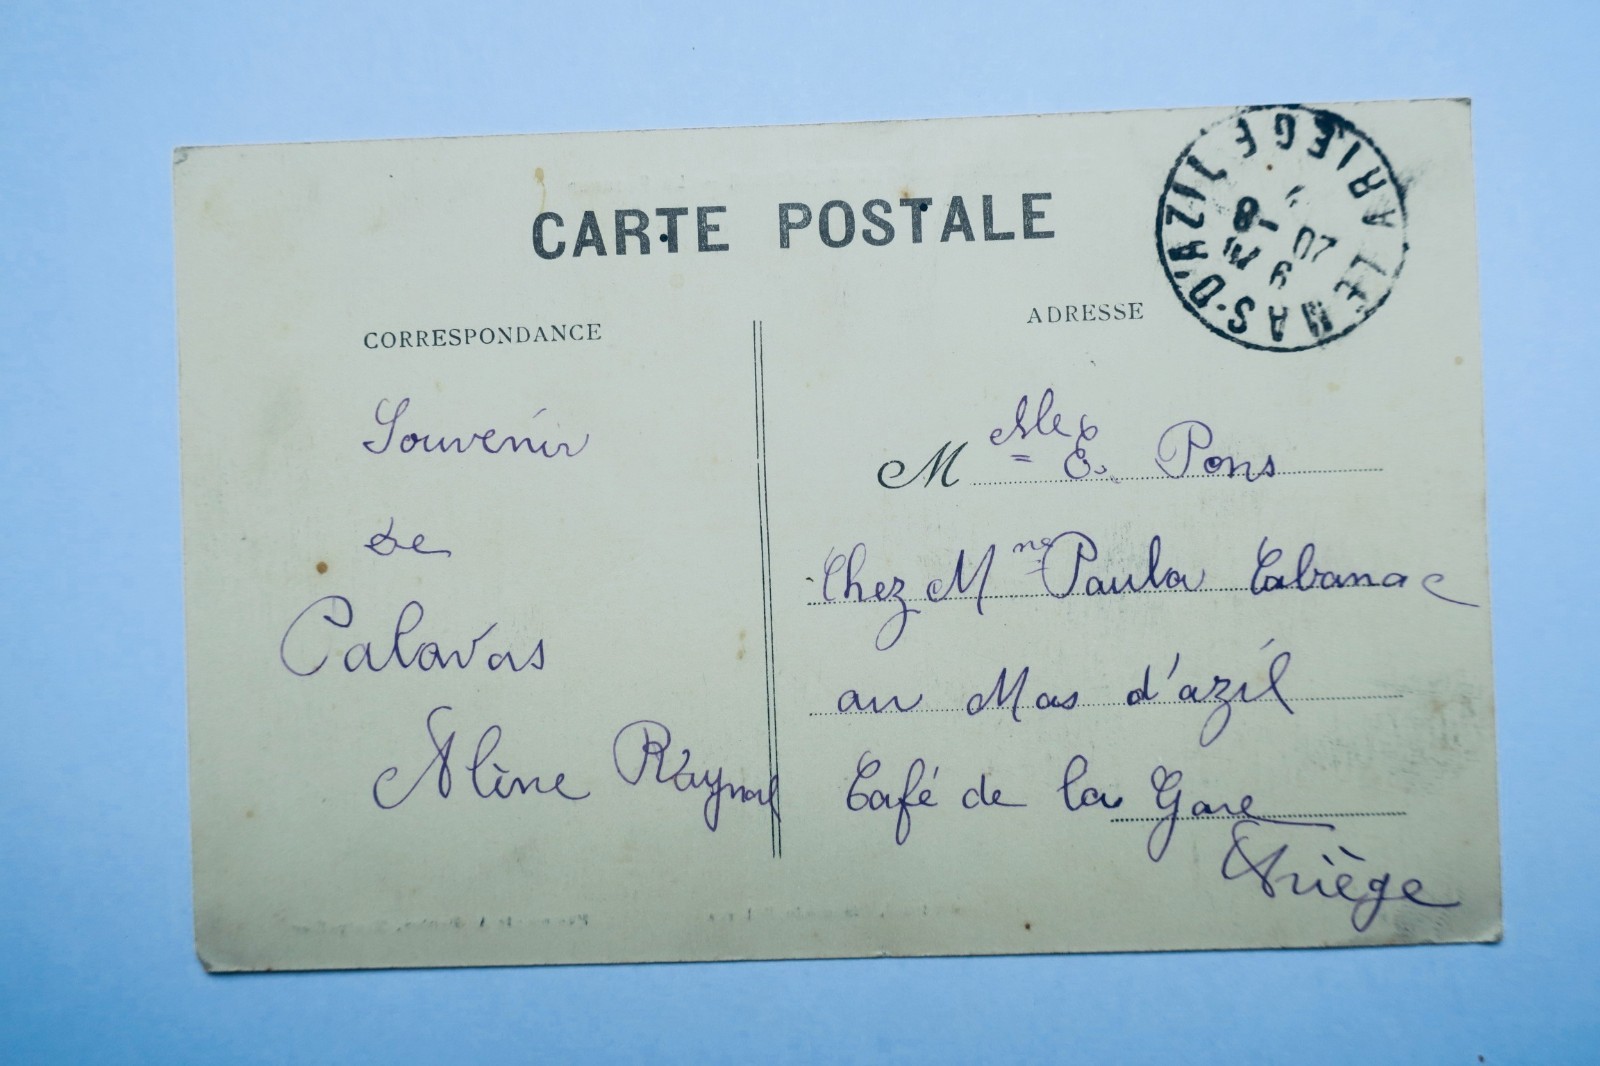 CARTE POSTALE
CORRESPONDANCE
Souvenir
de
Palavas
Alène Raynal
ADRESSE
M Mlle E. Pons
Chez Mme Paula Cabanac
au Mas d'azil
Café de la Gare
Ariège
LE MAS-D'AZIL
ARIEGE
8-
6
07